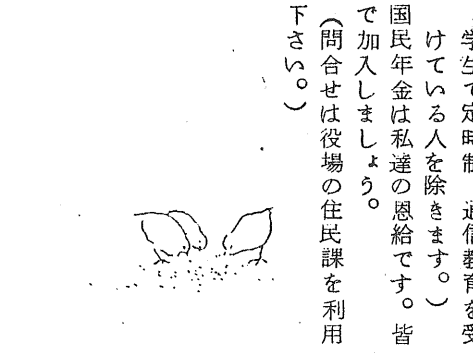 学生で定時制 通信教育を受
けている人を除きます。)
国民年金は私達の恩給です。皆
で加入しましょう。
(問合せは役場の住民課を利用
下さい。)